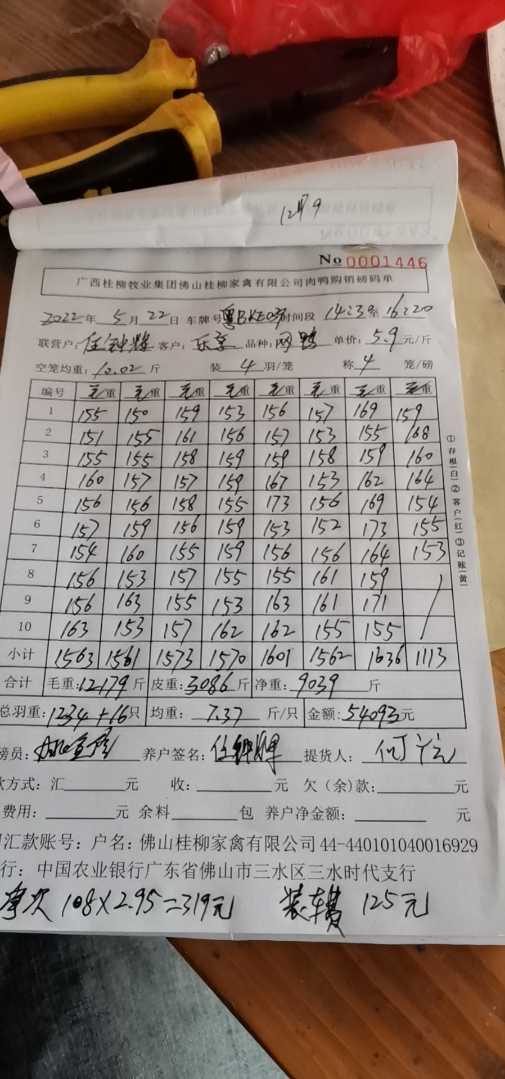 12月9
No 0001446
广西桂柳牧业集团佛山桂柳家禽有限公司肉鸭购销磅码单
2022年 5月 22日 车牌号 粤BKE 时间段 14:23至16:20
联营户: 客户: 品种: 单价: 5.9 元/斤
空笼均重: 10.02 斤 装 4 羽/笼 称 4 笼/磅
编号 毛重 毛重 毛重 毛重 毛重 毛重 毛重 毛重
1 155 150 159 153 156 157 169 159
2 151 155 161 156 157 153 155 168
3 155 155 158 159 159 158 159 160
4 160 157 157 159 167 153 162 164
5 156 156 158 155 173 156 169 154
6 157 159 156 159 153 152 173 155
7 154 160 155 159 156 156 164 153
8 156 153 157 155 155 161 159
9 156 163 155 153 163 161 171
10 163 153 157 162 162 155 155
小计 1563 1561 1573 1570 1601 1562 1636 1113
合计 毛重:12179斤 皮重:3086斤 净重:9039 斤
总羽重:1234+16只 均重: 7.37 斤/只 金额:54093元
磅员: 养户签名: 提货人:
款方式:汇 元 收: 元 欠(余)款: 元
费用: 元 余料 包 养户净金额: 元
汇款账号:户名:佛山桂柳家禽有限公司44-440101040016929
行:中国农业银行广东省佛山市三水区三水时代支行
108×2.95=319元 装车费 125元
①存根(白)②客户(红)③记账(黄)